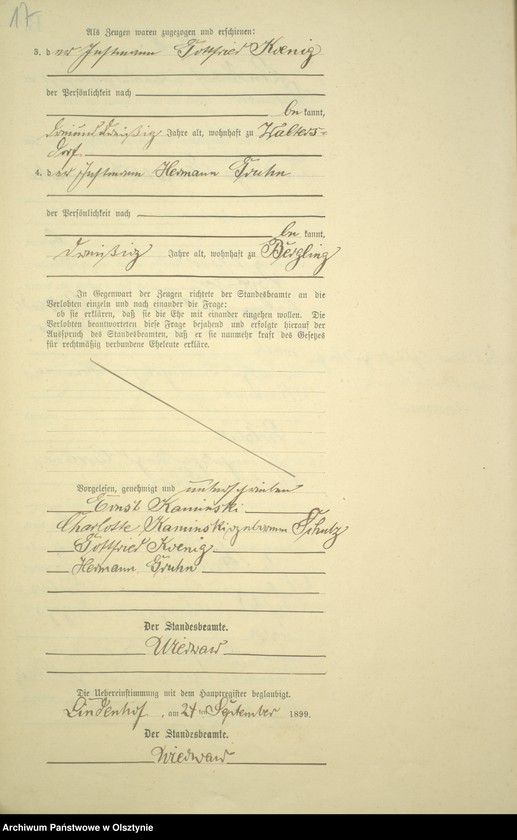 17
Als Zeugen waren zugezogen und erschienen:
3. d er Instmann Gottfried Koenig
der Persönlichkeit nach
be kannt,
dreiunddreißig Jahre alt, wohnhaft zu Walters=
dorf
4. d er Instmann Hermann Gruhn
der Persönlichkeit nach
be kannt,
dreißig Jahre alt, wohnhaft zu Bergling
In Gegenwart der Zeugen richtete der Standesbeamte an die
Verlobten einzeln und nach einander die Frage:
ob sie erklären, daß sie die Ehe mit einander eingehen wollen. Die
Verlobten beantworteten diese Frage bejahend und erfolgte hierauf der
Ausspruch des Standesbeamten, daß er sie nunmehr kraft des Gesetzes
für rechtmäßig verbundene Eheleute erkläre.
Vorgelesen, genehmigt und unterschrieben
Ernst Kaminski
Charlotte Kaminski geborenen Schulz
Gottfried Koenig
Hermann Gruhn
Der Standesbeamte.
Wiedwald
Die Uebereinstimmung mit dem Hauptregister beglaubigt.
Lindenhof, am 24 ten September 1899.
Der Standesbeamte.
Wiedwald
Archiwum Państwowe w Olsztynie